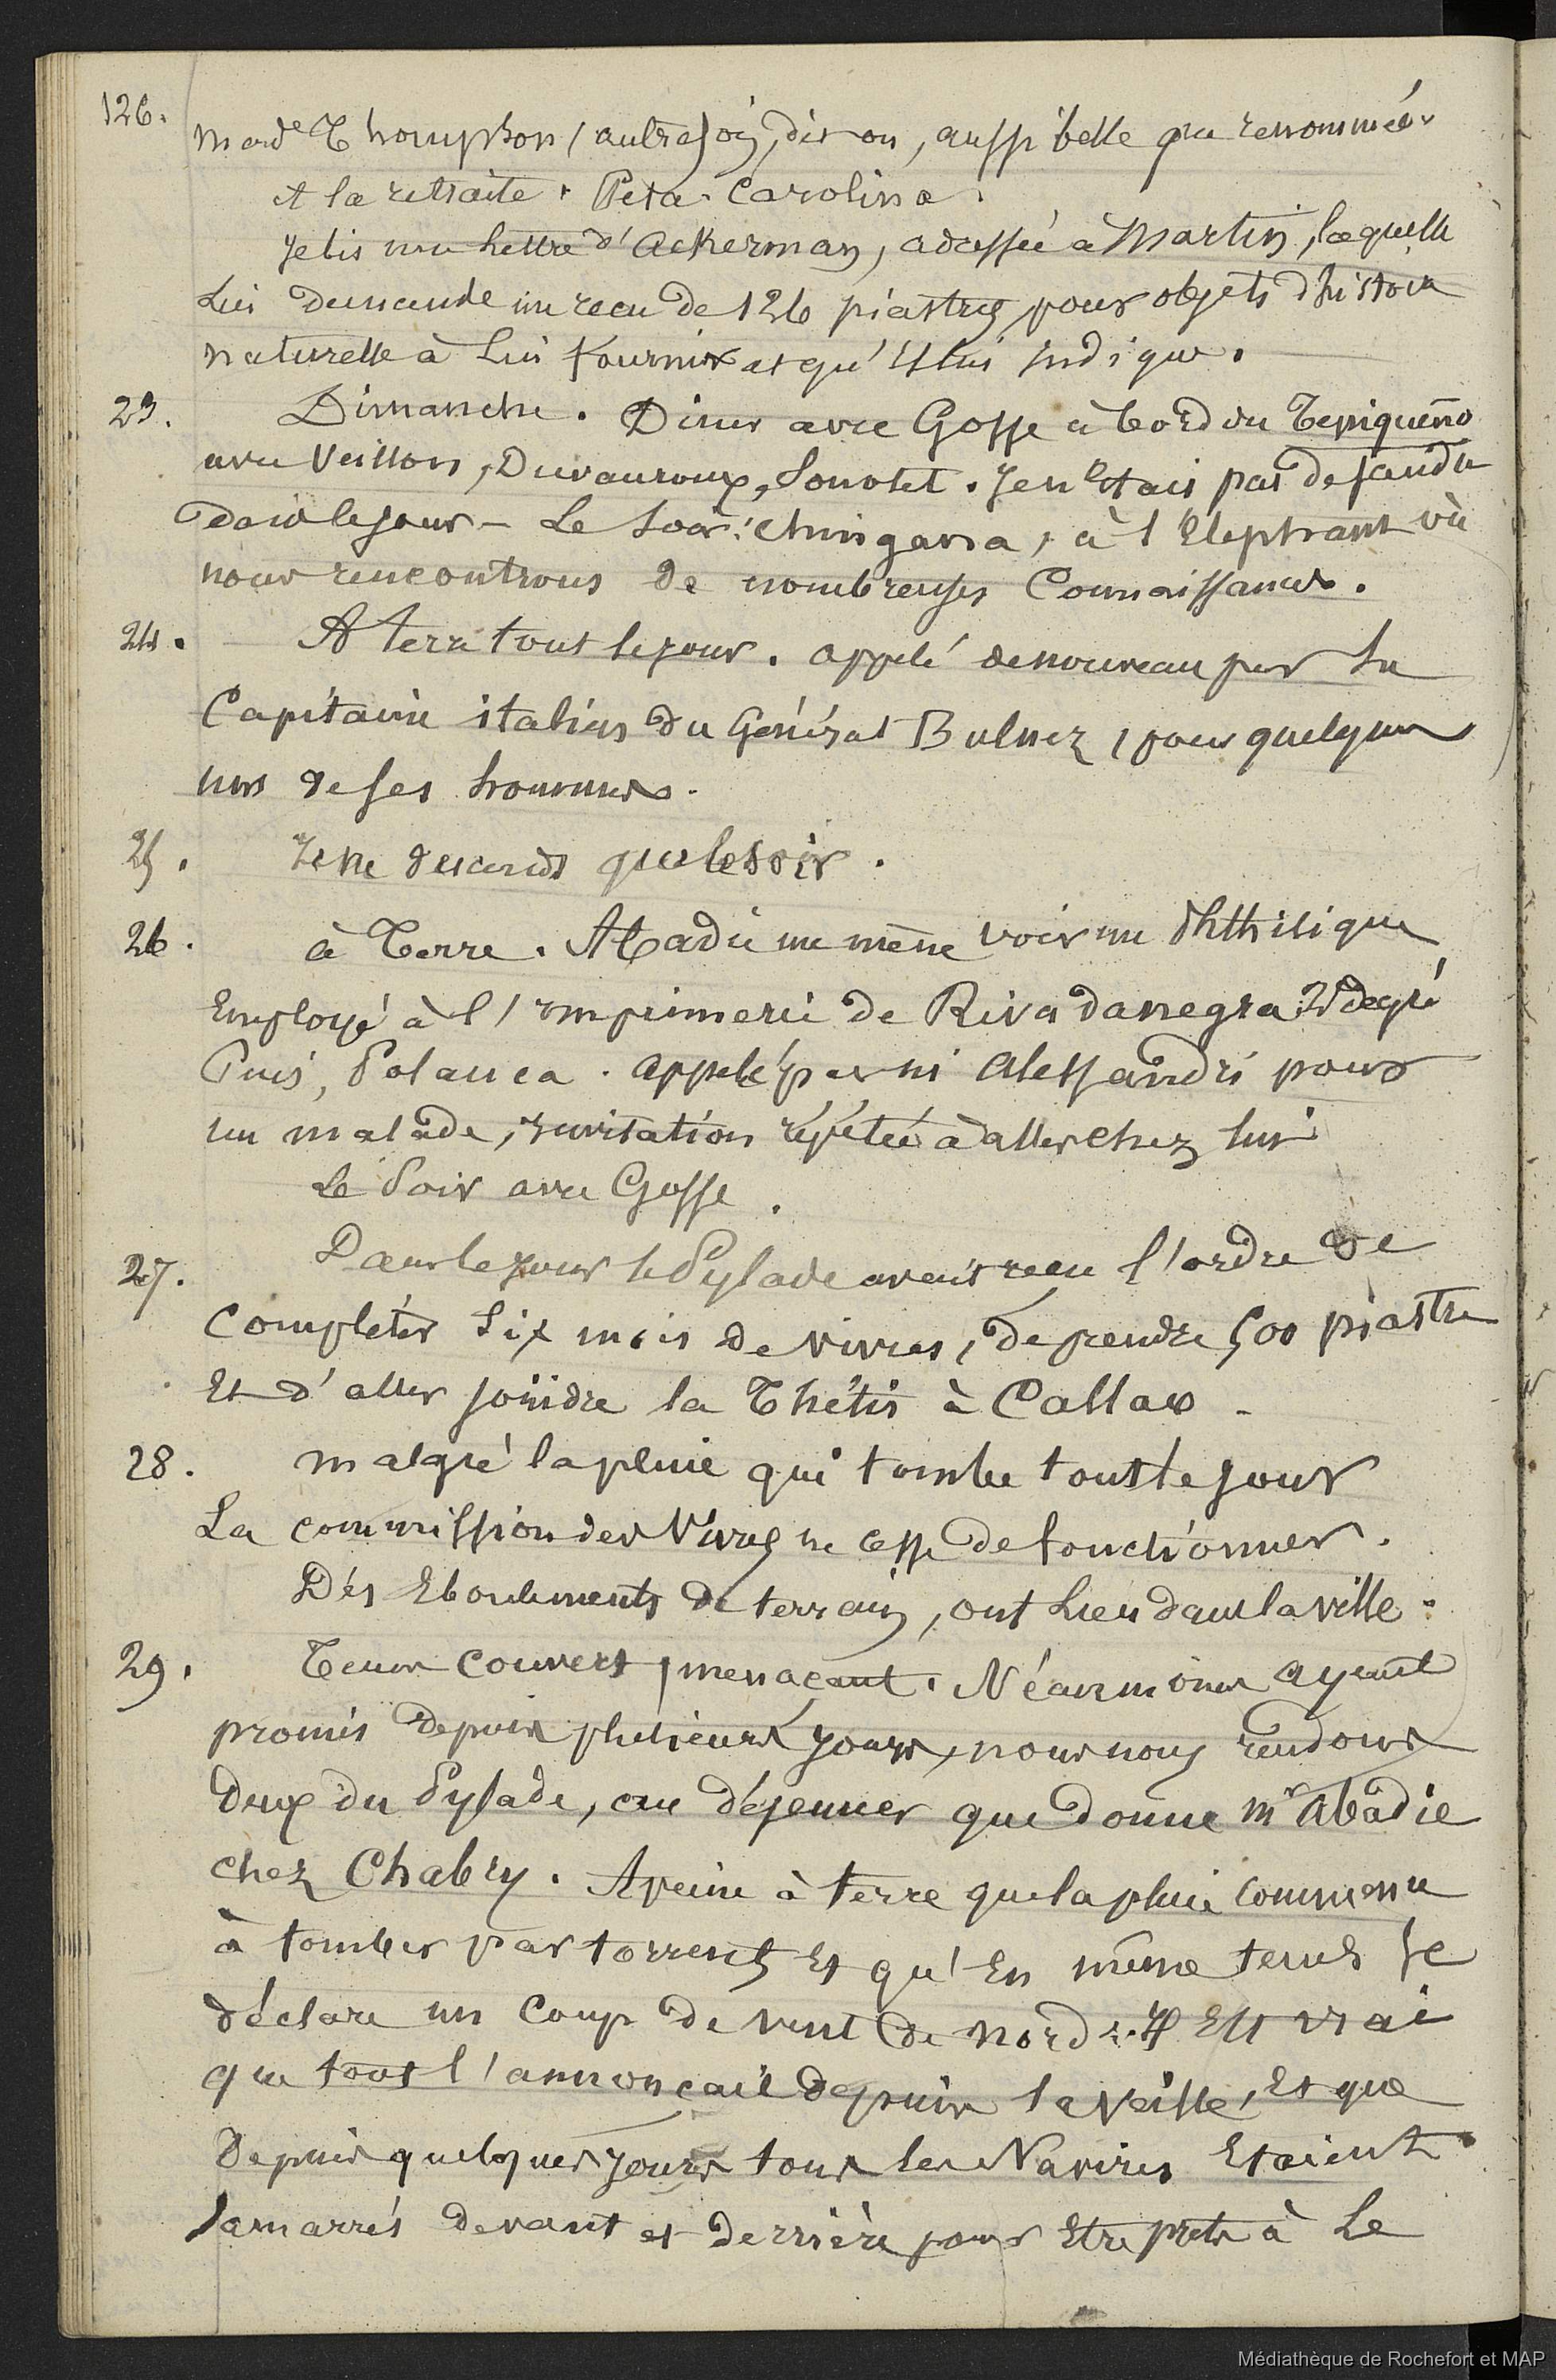 126.
Made Thompson (autrefois, dit on, aussi belle que renommée.
et la retraite. Peta. Carolina.
Je lis une lettre d'Ackerman, adressée à Martin, laquelle
Lui demande un recu de 126 piastres pour objets d'histoire
naturelle à lui fournir et qu'il lui indique.
23. Dimanche. Diner avec Gosse à bord du Tepiqueño
avec Veillon, Duvauroux, Lonotet. Je n'étais pas descendu
dans le jour - Le soir: chingana, à l'Elephant où
nous rencontrons de nombreuses Connaissances.
24. A terre tout le jour. appelé de nouveau par le
Capitaine italien du Général Bulnez, pour quelques
uns de ses hommes.
25. Je ne descends que le soir.
26. à Terre. Abadie me mène voir un phthisique
Employé à l'imprimerie de Rivadanegra 2d degré
Puis, Polanca. Appelé par mi Alessandri pour
un malade, invitation répétée à aller chez lui
Le Soir avec Gosse.
27. Dans le jour le Pylade avait recu l'ordre de
Compléter Six mois de vivres, de prendre 500 piastres
Et d'aller joindre la Thétis à Callao -
28. malgré la pluie qui tombe tout le jour
La commission des Vivres ne cesse de fonctionner.
Dés Eboulements de terrain, ont Lieu dans la ville.
29. Tems couvert, menaçant. Néanmoins ayant
promis depuis plusieurs jours, nous nous rendons
Deux du Pylade, au déjeuner que donne mr Abadie
chez Chabry. A peine à terre que la pluie commence
à tomber par torrents Et qu'En même tems Se
déclare un Coup de vent de nord. Il Est vrai
que tout l'annonçait depuis la veille, Et que
Depuis quelques jours tous les Navires Etaient
amarrés devant et derrière pour Etre prets à Le
Médiathèque de Rochefort et MAP